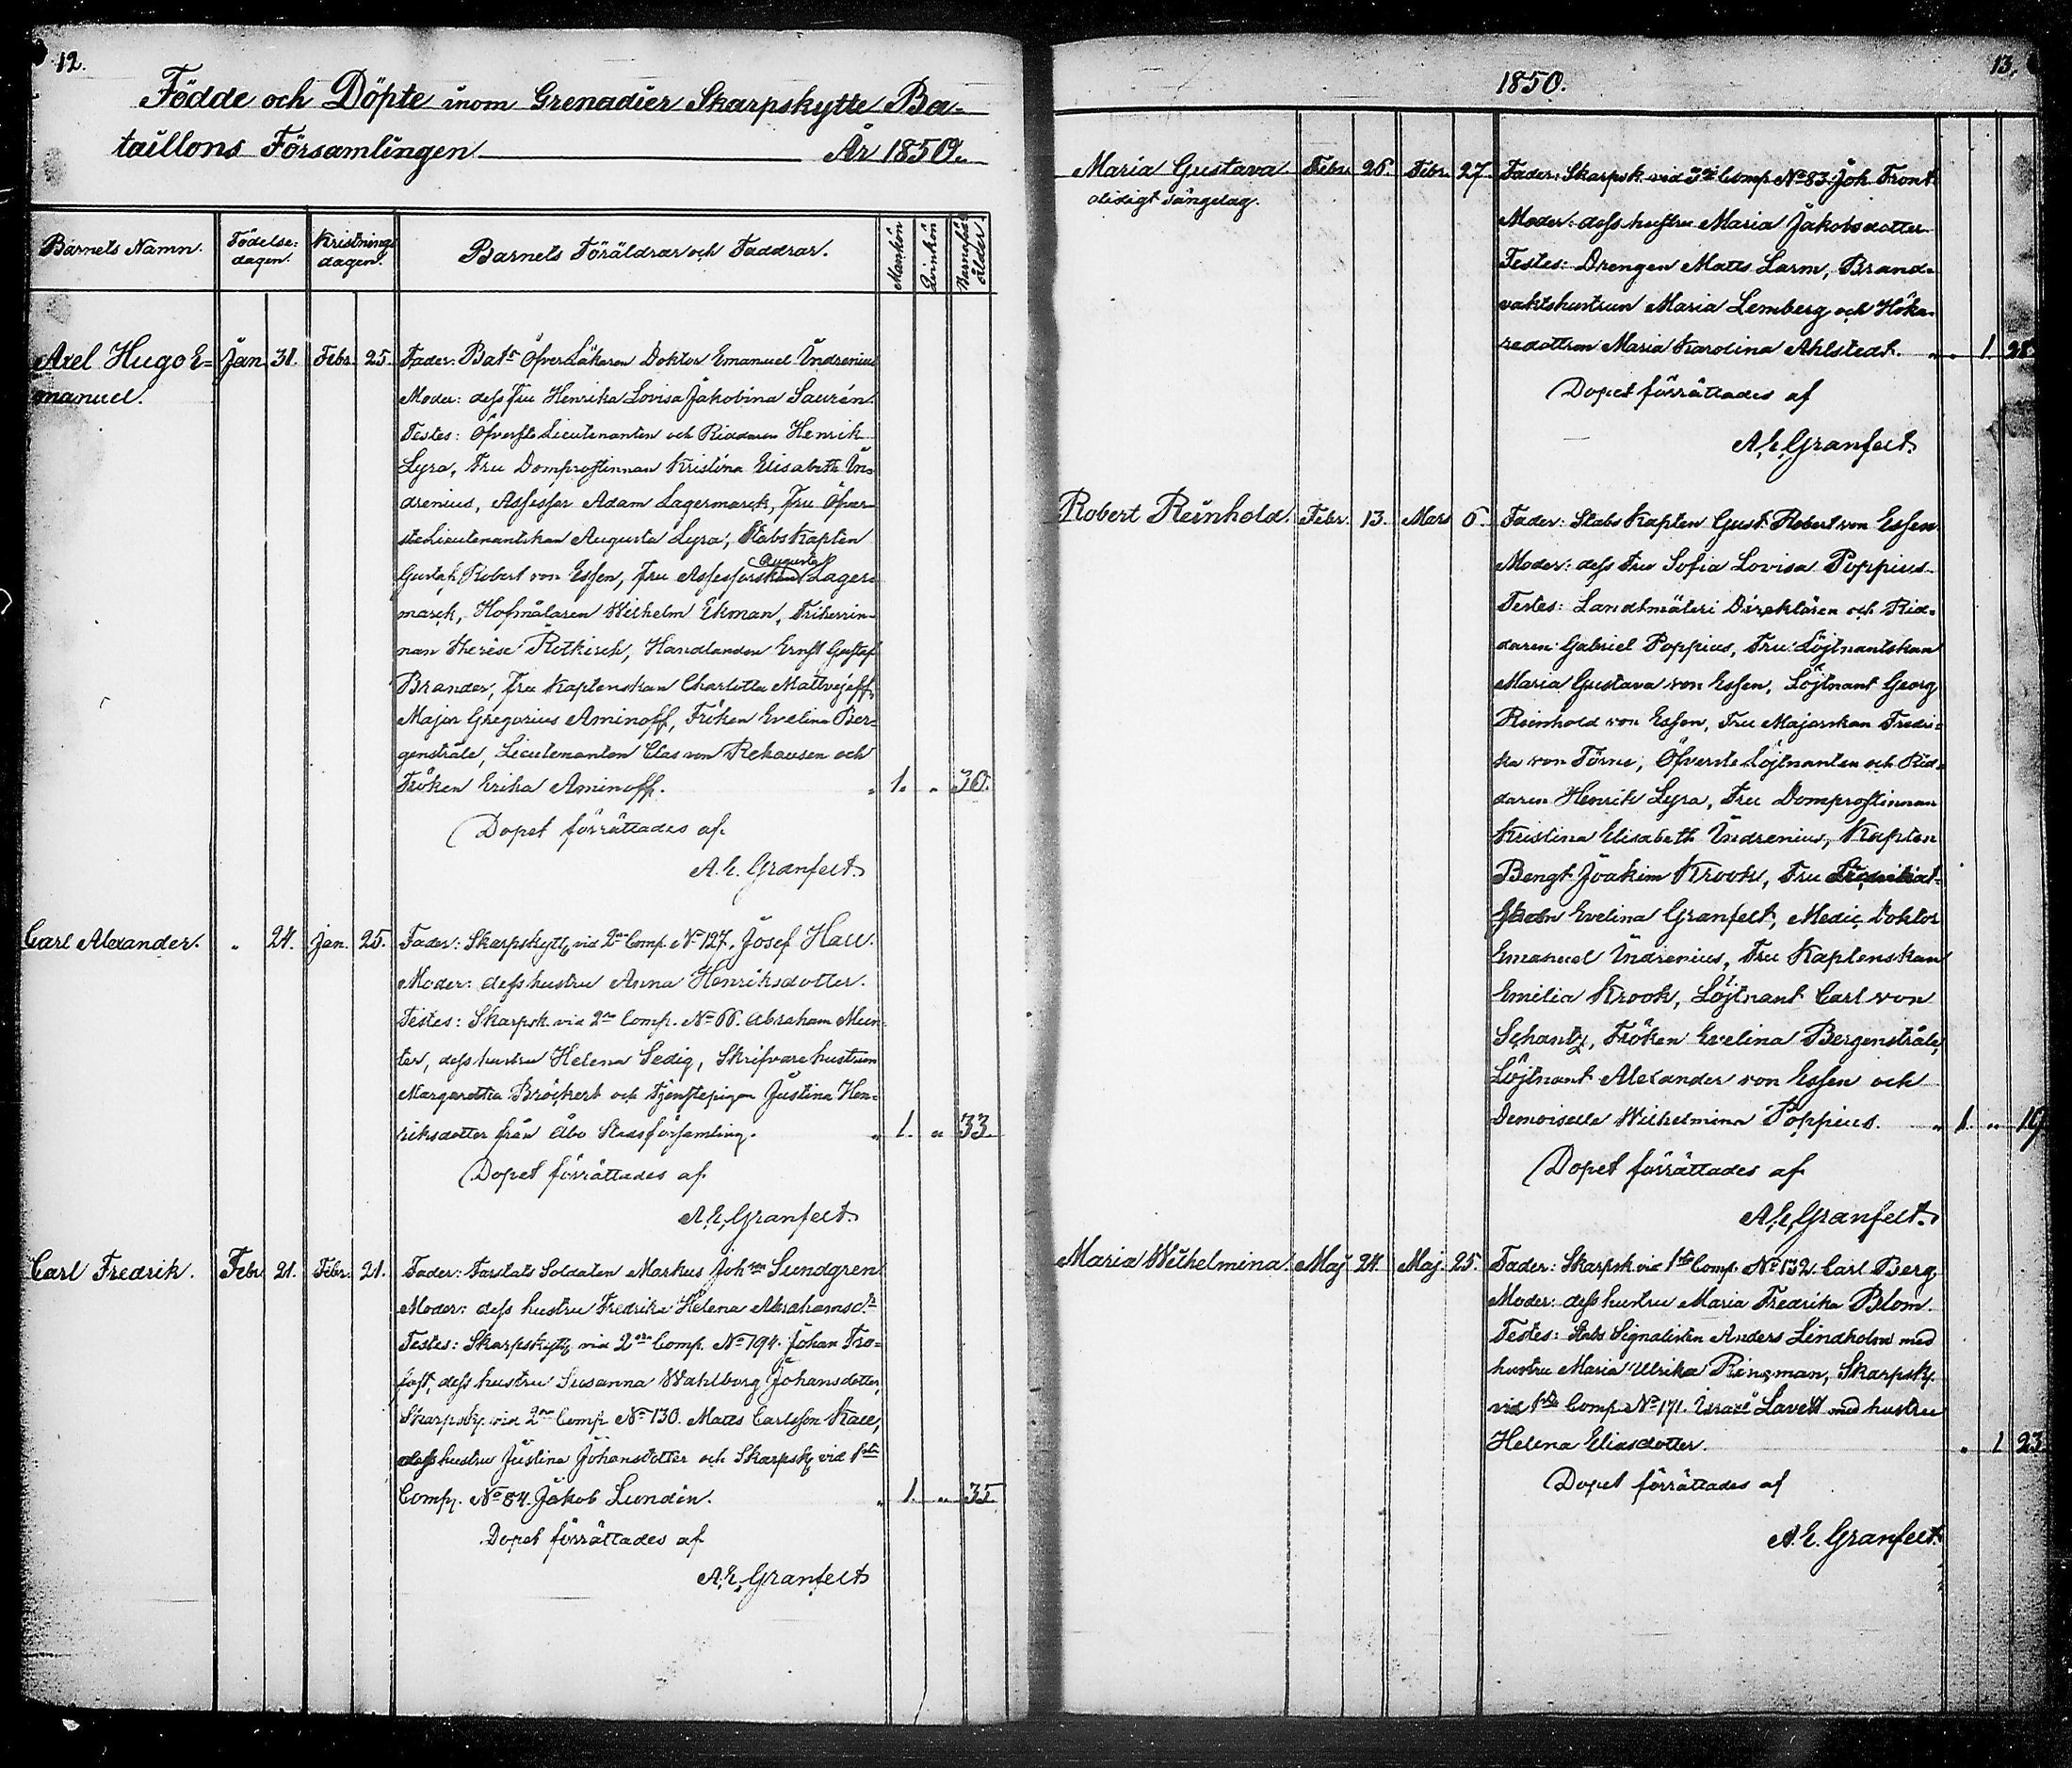 12.
Födde och Döpte inom Grenadier Skarpskytte Ba-
taillons Församlingen År 1850.
Barnets Namn.
Födelse-
dagen.
Kristnings
dagen.
Barnets Föräldrar och Faddrar.
Mankön
Qvinkön
ålder
Axel Hugo E=
manuel.
Jan. 31. Febr. 25.
Fader: Bats Öfver Läkaren Doktor Emanuel Indrenius
Moder: dess Fru Henrika Lovisa Jakobina Saurén.
Testes: Öfverste Lieutenanten och Riddaren Henrik
Lyra, Fru Domprostinnan Kristina Elisabeth In=
drenius, Assessor Adam Lagermarck, Fru Öfver=
steLieutenantskan Augusta Lyra, Stabs Kapten
Gustaf Robert von Essen, Fru Assessorskan Augusta Lager=
marck, Hofmålaren Wilhelm Ekman, Friherrin=
nan Therèse Rotkirch, Handlanden Ernst Gustaf
Brander, Fru Kaptenskan Charlotta Mattvejeff,
Major Gregorius Aminoff, Fröken Evelina Ber=
genstråle, Lieutenanten Clas von Rehausen och
Fröken Erika Aminoff. " 1. " 30.
Dopet förrättades af.
A. E. Granfelt.
Carl Alexander. " 24. Jan. 25.
Fader: Skarpskytt vid 2dra Comp. No 127. Josef Hau.
Moder: dess hustru Anna Henriksdotter.
Testes: Skarpsk. vid 2dra Comp. No 66. Abraham Mun=
ter, dess hustru Helena Sedig, Skrifvare hustrun
Margaretha Bröckert och Tjenstepigan Justina Hen=
riksdotter från Åbo Stadsförsamling. " 1. " 33.
Dopet förrättades af.
A. E. Granfelt.
Carl Fredrik. Febr. 21. Febr. 21.
Fader: Soldaten Markus Johsson Sundgren
Moder: dess hustru Fredrika Helena Abrahamsdr
Testes: Skarpskytt vid 2dra Comp. No 194. Johan Tro=
fast, dess hustru Susanna Wahlborg Johansdotter,
Skarpsk. vid 2dra Comp No 130. Matts Carlsson Kau,
dess hustru Justina Johansdotter och Skarpsk. vid 1sta
Comp. No 54. Jakob Lundén. " 1. " 35.
Dopet förrättades af
A. E. Granfelt
1850.
13.
Maria Gustava. Febr. 26. Febr. 27.
olidigt sängelag.
Fader: Skarpsk. vid 3dje Comp No 83. Joh. Front
Moder: dess hustru Maria Jakobsdotter
Testes: Drengen Matts Larm, Brand=
vaktshustrun Maria Lemberg och Höka=
redottren Maria Karolina Ahlstedt. " 1 28.
Dopet förrättades af
A. E. Granfelt.
Robert Reinhold. Febr. 13. Mars 6.
Fader: Stabs Kapten Gust. Robert von Essen
Moder: dess Fru Sofia Lovisa Poppius.
Testes: Landtmäteri Direktören och Rid=
daren Gabriel Poppius, Fru Löjtnantskan
Maria Gustava von Essen, Löjtnant Georg
Reinhold von Essen, Fru Majorskan Fredri=
ka von Törne, Öfverste Löjtnanten och Rid=
daren Henrik Lyra, Fru Domprostinnan
Kristina Elisabeth Indrenius, Kapten
Bengt Joakim Krook, Fru
Evelina Granfelt, Medic. Doktor
Emanuel Indrenius, Fru Kaptenskan
Emilia Krook, Löjtnant Carl von
Schantz, Fröken Evelina Bergenstråle,
Löjtnant Alexander von Essen och
Demoiselle Wilhelmina Poppius. " 1. " 19
Dopet förrättades af
A. E. Granfelt.
Maria Wilhelmina. Maj 24. Maj. 25.
Fader: Skarpsk vid 1sta Comp. No 132. Carl Berg
Moder: dess hustru Maria Fredrika Blom.
Testes: Stabs Signalisten Anders Lindholm med
hustru Maria Ulrika Ringman, Skarpsk.
vid 1sta Comp. No 171. Israel Lavett med hustru
Helena Eliasdotter. " 1 23
Dopet förrättades af
A. E. Granfelt.